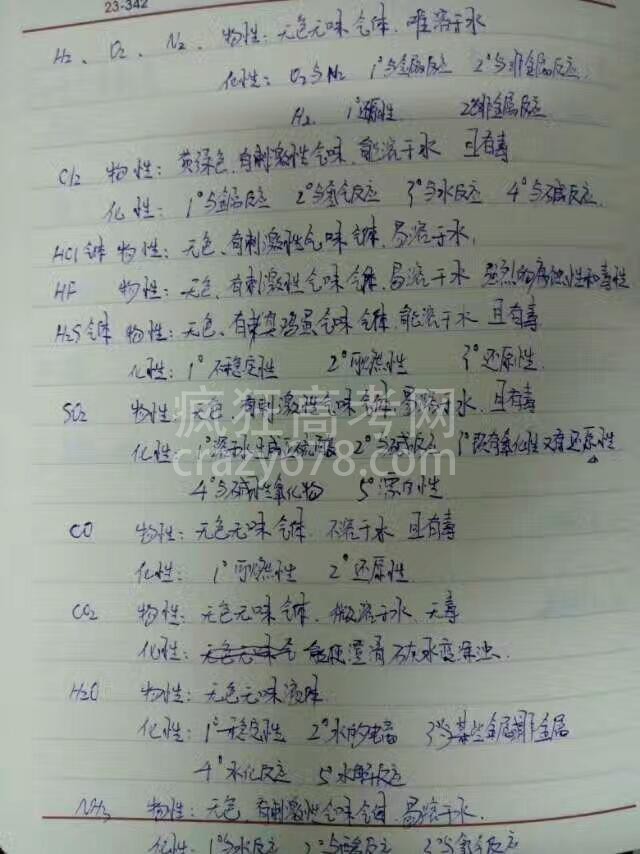 23-342
H₂、O₂、N₂、物性：无色无味气体、难溶于水
化性：O₂与N₂ 1°与金属反应 2°与非金属反应，
H₂ 1°还原性 2°非金属反应
Cl₂ 物性：黄绿色，有刺激性气味，能溶于水 且有毒
化性：1°与金属反应 2°与氢气反应 3°与水反应 4°与碱反应.
HCl气体 物性：无色、有刺激性气味气体、易溶于水，
HF 物性：无色、有刺激性气味气体、易溶于水 强烈的腐蚀性和毒性
H₂S气体 物性：无色、有臭鸡蛋气味气体，能溶于水 且有毒
化性：1°不稳定性 2°可燃性 3°还原性.
SO₂ 物性：无色，有刺激性气味气体，易溶于水，且有毒
化性：1°溶于水生成亚硫酸 2°与碱反应 3°既有氧化性又有还原性
4°与碱性氧化物 5°漂白性
疯狂高考网
crazy678.com
CO 物性：无色无味气体，不溶于水 且有毒
化性：1°可燃性 2°还原性
CO₂ 物性：无色无味气体，微溶于水，无毒
化性：能使澄清石灰水变浑浊.
H₂O 物性：无色无味液体
化性：1°稳定性 2°水的电离 3°与某些金属非金属
4°水化反应 5°水解反应
NH₃ 物性：无色，有刺激性气味气体，易溶于水.
化性：1°与水反应 2°与酸反应 3°与氧气反应